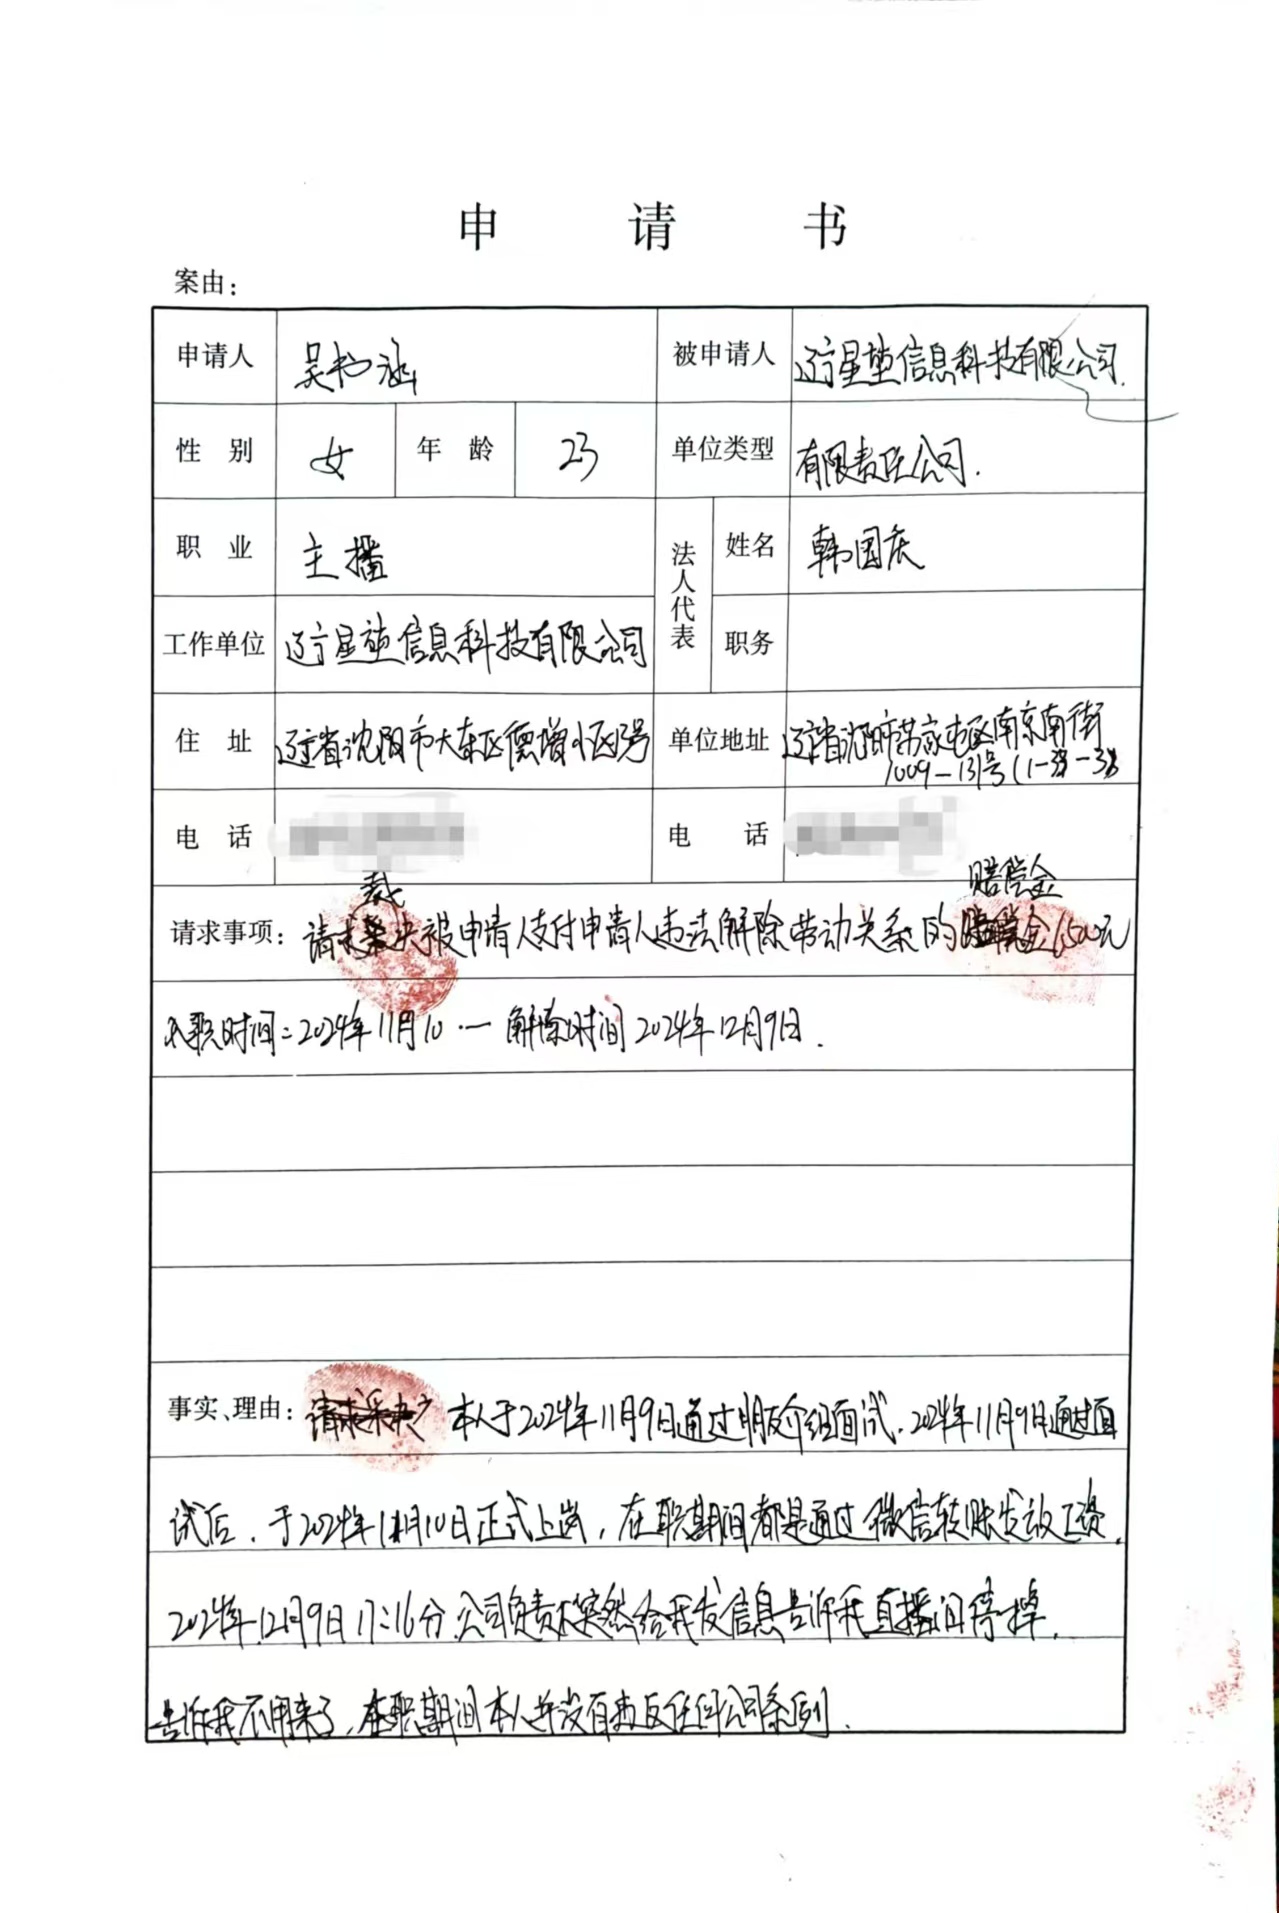 申请书
案由：
申请人 吴 涵 被申请人 辽宁星堃信息科技有限公司.
性别 女 年龄 23 单位类型 有限责任公司.
职业 主播 法人代表 姓名 韩国庆
工作单位 辽宁星堃信息科技有限公司 职务
住址 辽宁省沈阳市大东区德增小区3号 单位地址 辽宁省沈阳市苏家屯区南京南街
1009-131号(1-38-38
电话 电话
裁 赔偿金
请求事项：请求 决被申请人支付申请人违法解除劳动关系的 6500元
入职时间：2024年11月10. 一 解除时间2024年12月9日.
事实、理由：请求采 本人于2024年11月9日通过朋友介绍面试.2024年11月9日通过面
试后.于2024年11月10日正式上岗,在职期间都是通过微信转账发放工资.
2024年12月9日17:16分.公司负责人突然给我发信息告诉我直播间停掉.
告诉我不用来了,在职期间本人并没有违反任何公司条例.